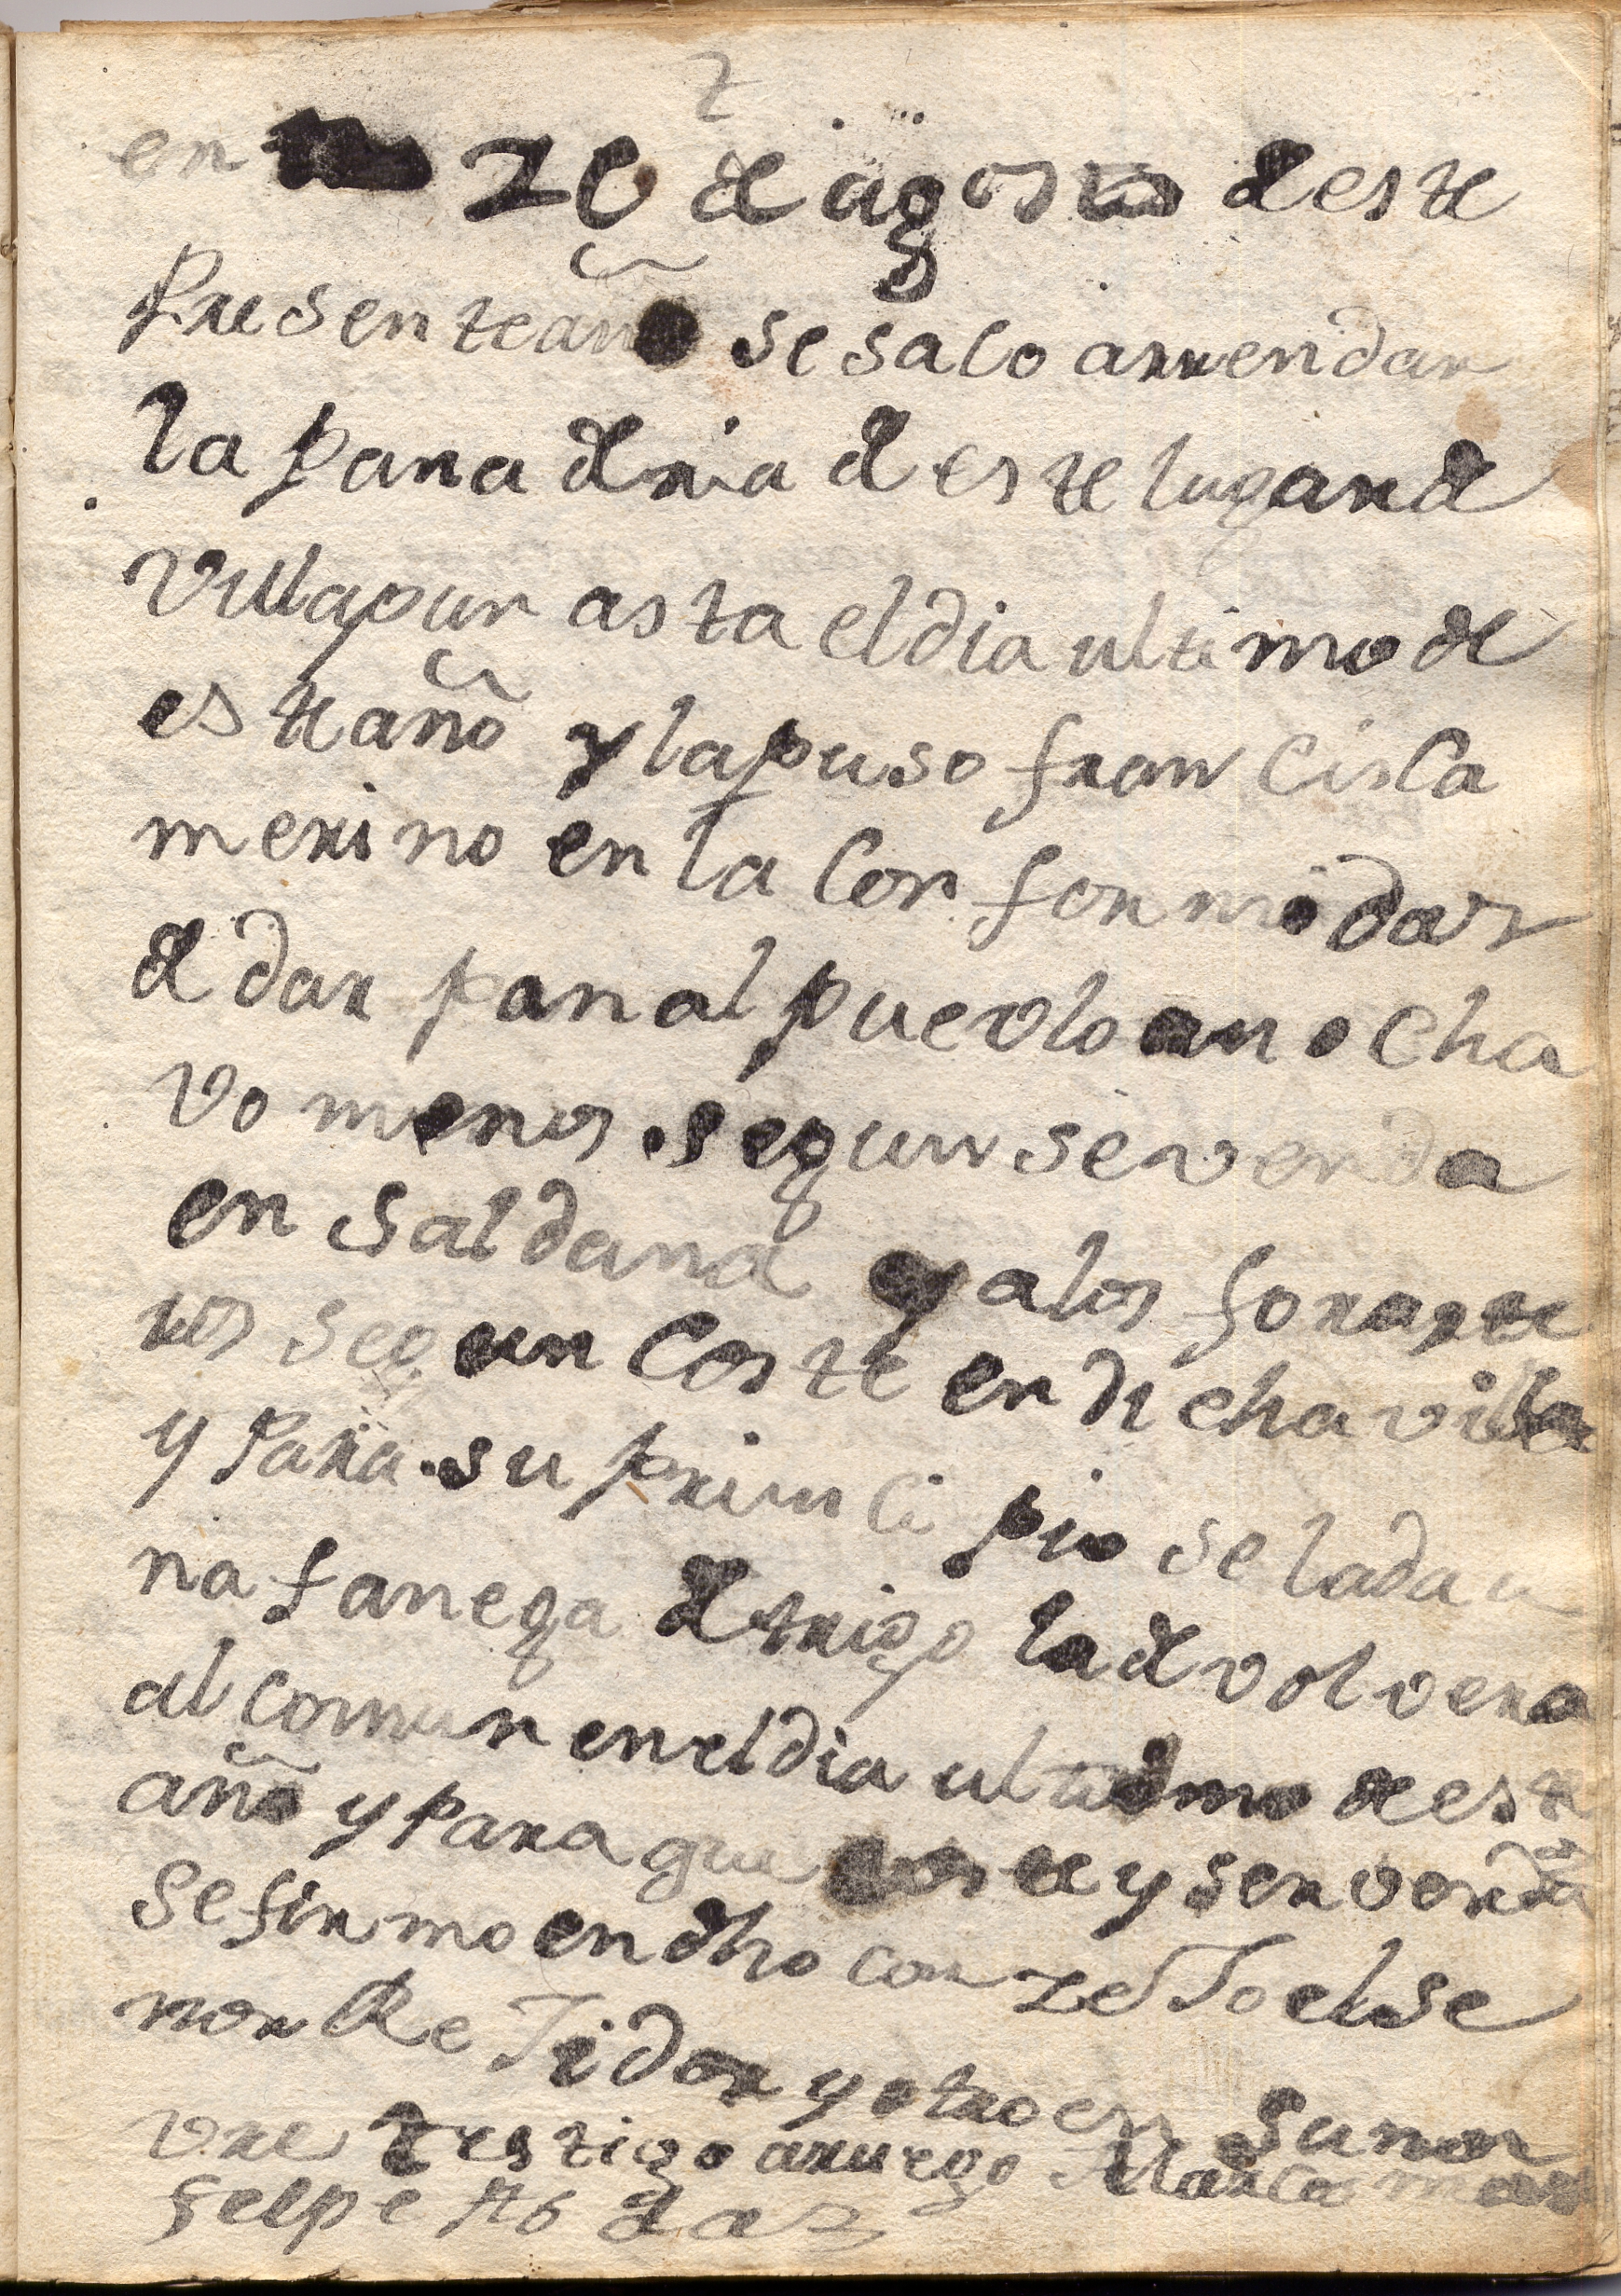 2
en 20 de agosto de este
Presente año se saco arrendar
la panaderia de este lugar de
villapun asta el dia ultimo de
este año y la puso francisca
merino en la conformidaz
de dar pan al puevlo an ocha
vo menos segun se venda
en saldana y a los foraste
ros segun coste en dicha villa
y para su principio se la da u
na fanega de trigo la devolvera
al comun en el dia ultimo de este
año y para que coste y ser verda
se firmo en dho conzeJo el se
nor ReJidor y otro en su non
vre testigo a ruego Marcos
felipe